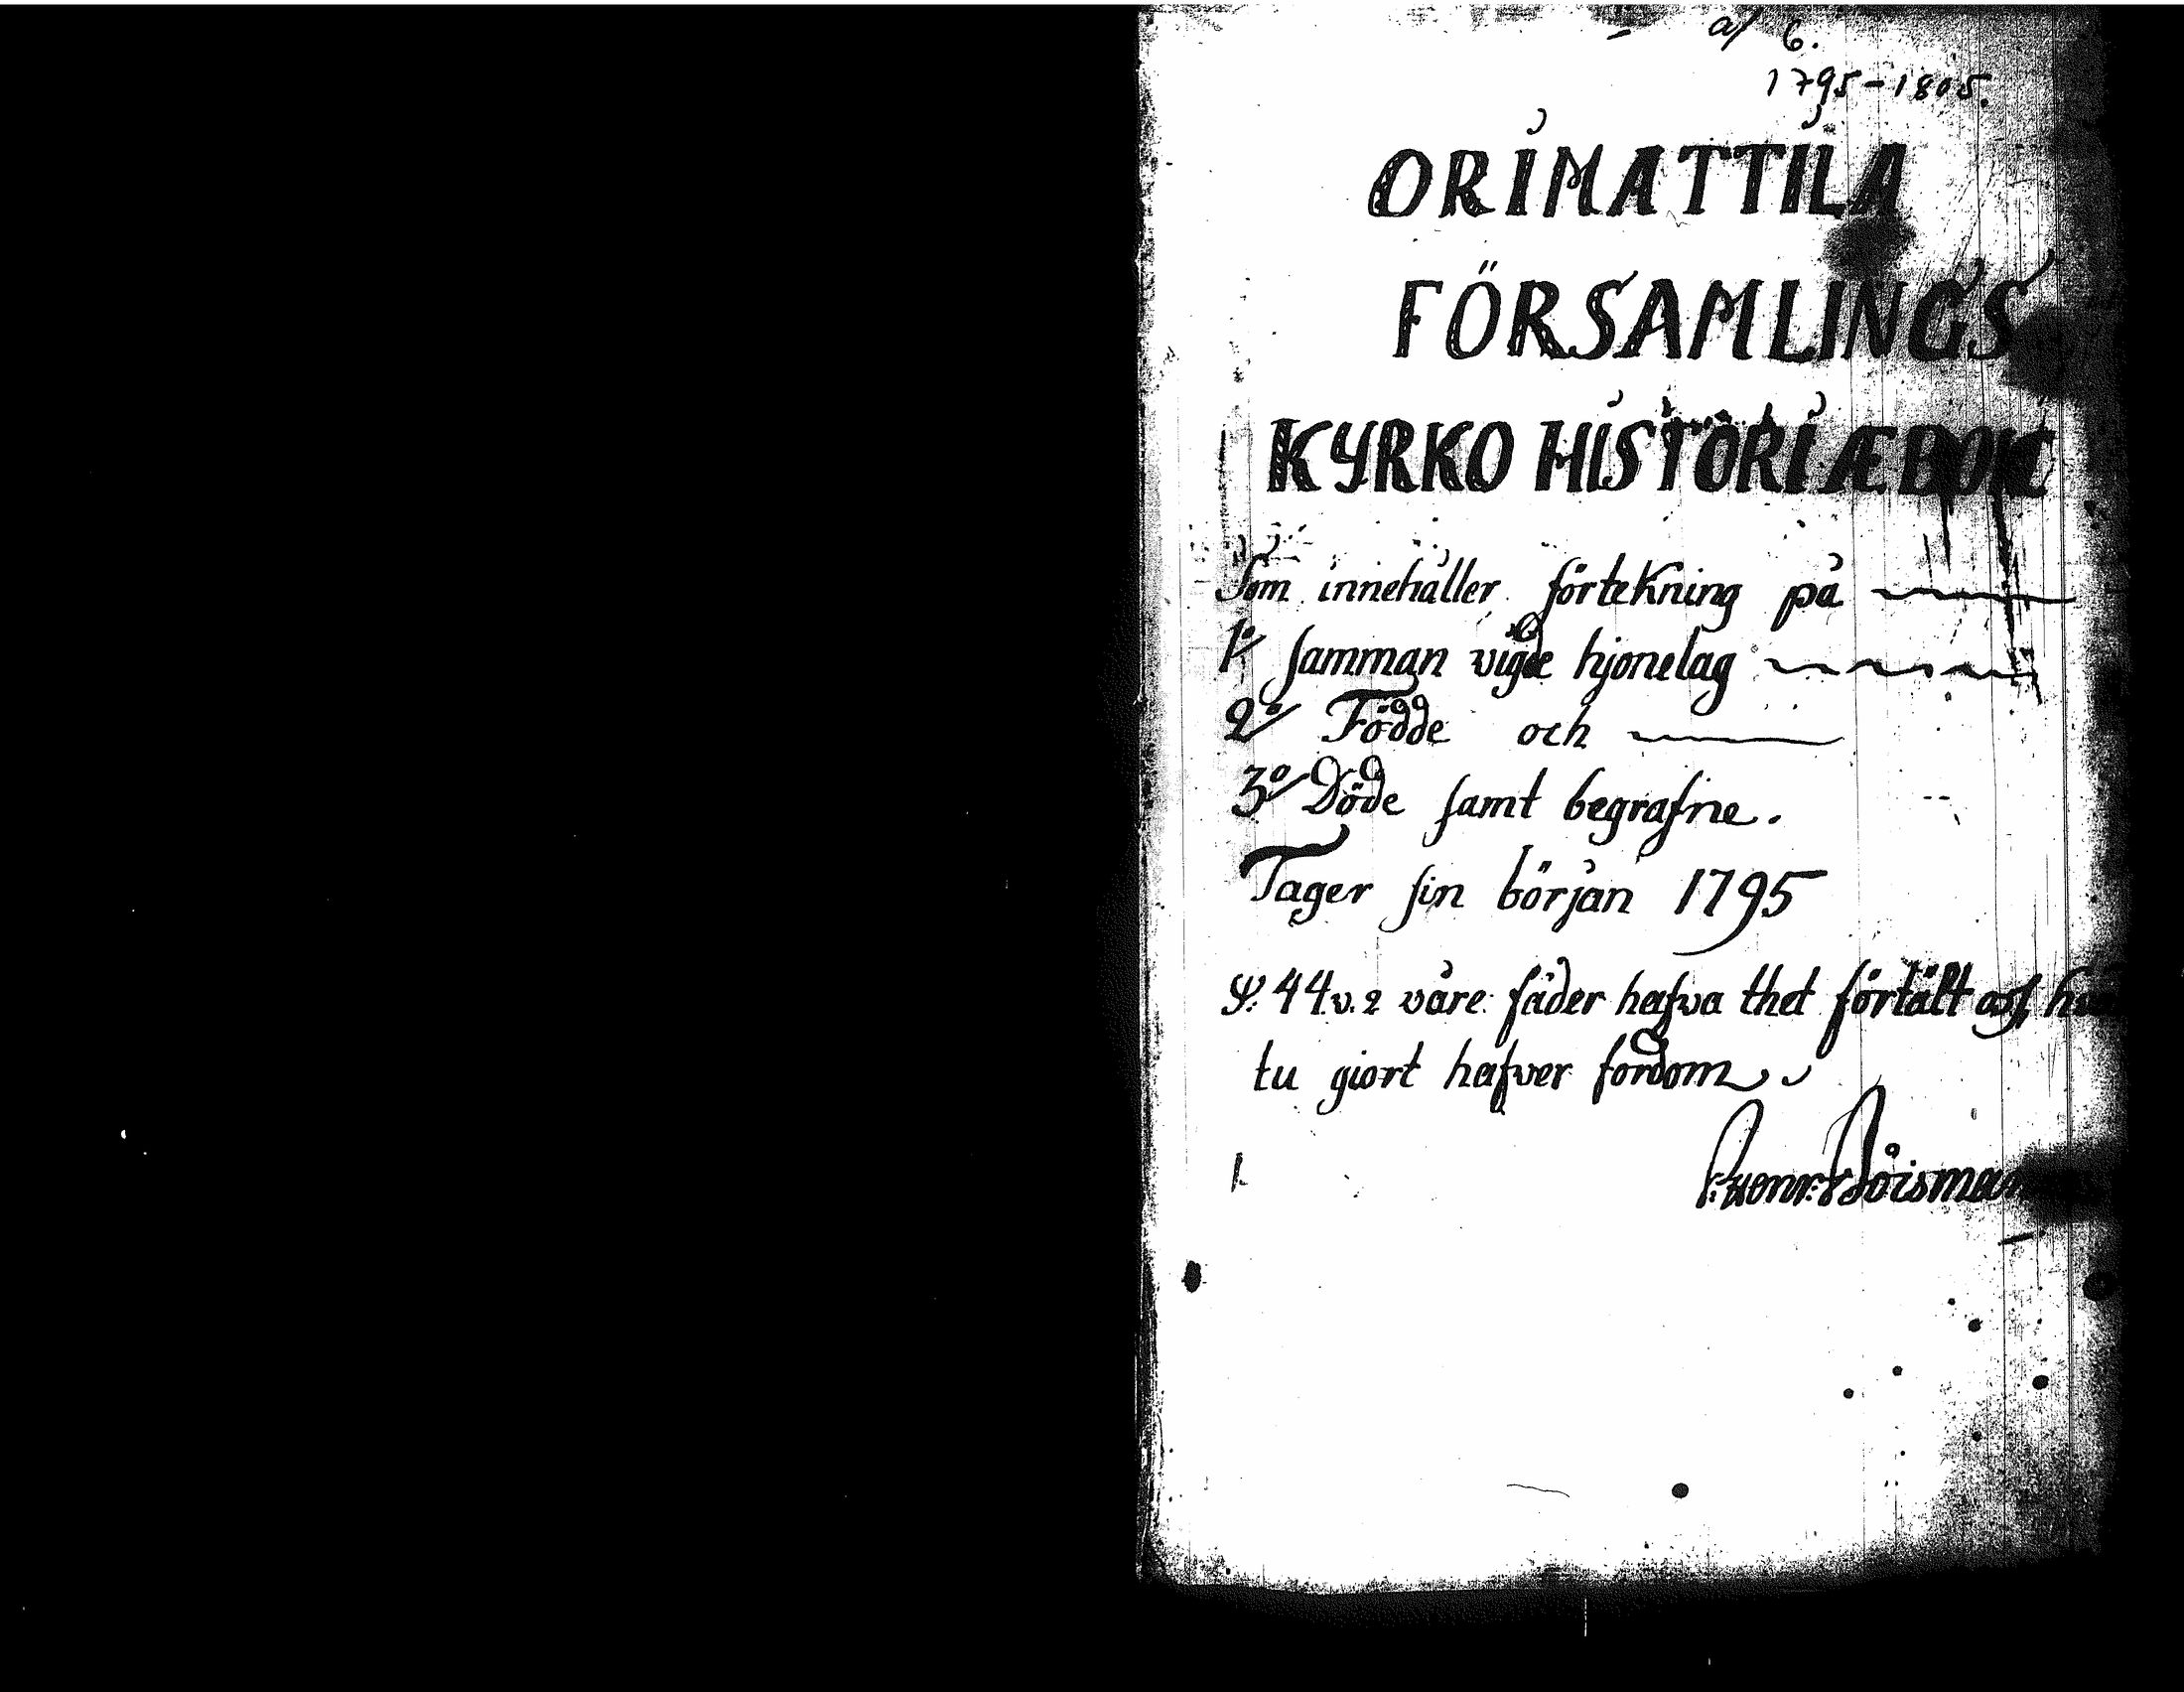 a/ 6.
1795-1805.
ORIMATTILA
FÖRSAMLINGS
KYRKO HISTORIÆBOK
Som innehåller förtekning på
1º/ samman vigde hjonelag
2º/ Födde och
3º/ Döde samt begrafne.
Tager sin början 1795
Ps: 44 v. 2 våre fäder hafva thet förtält oss, hvad
tu giort hafver fordom